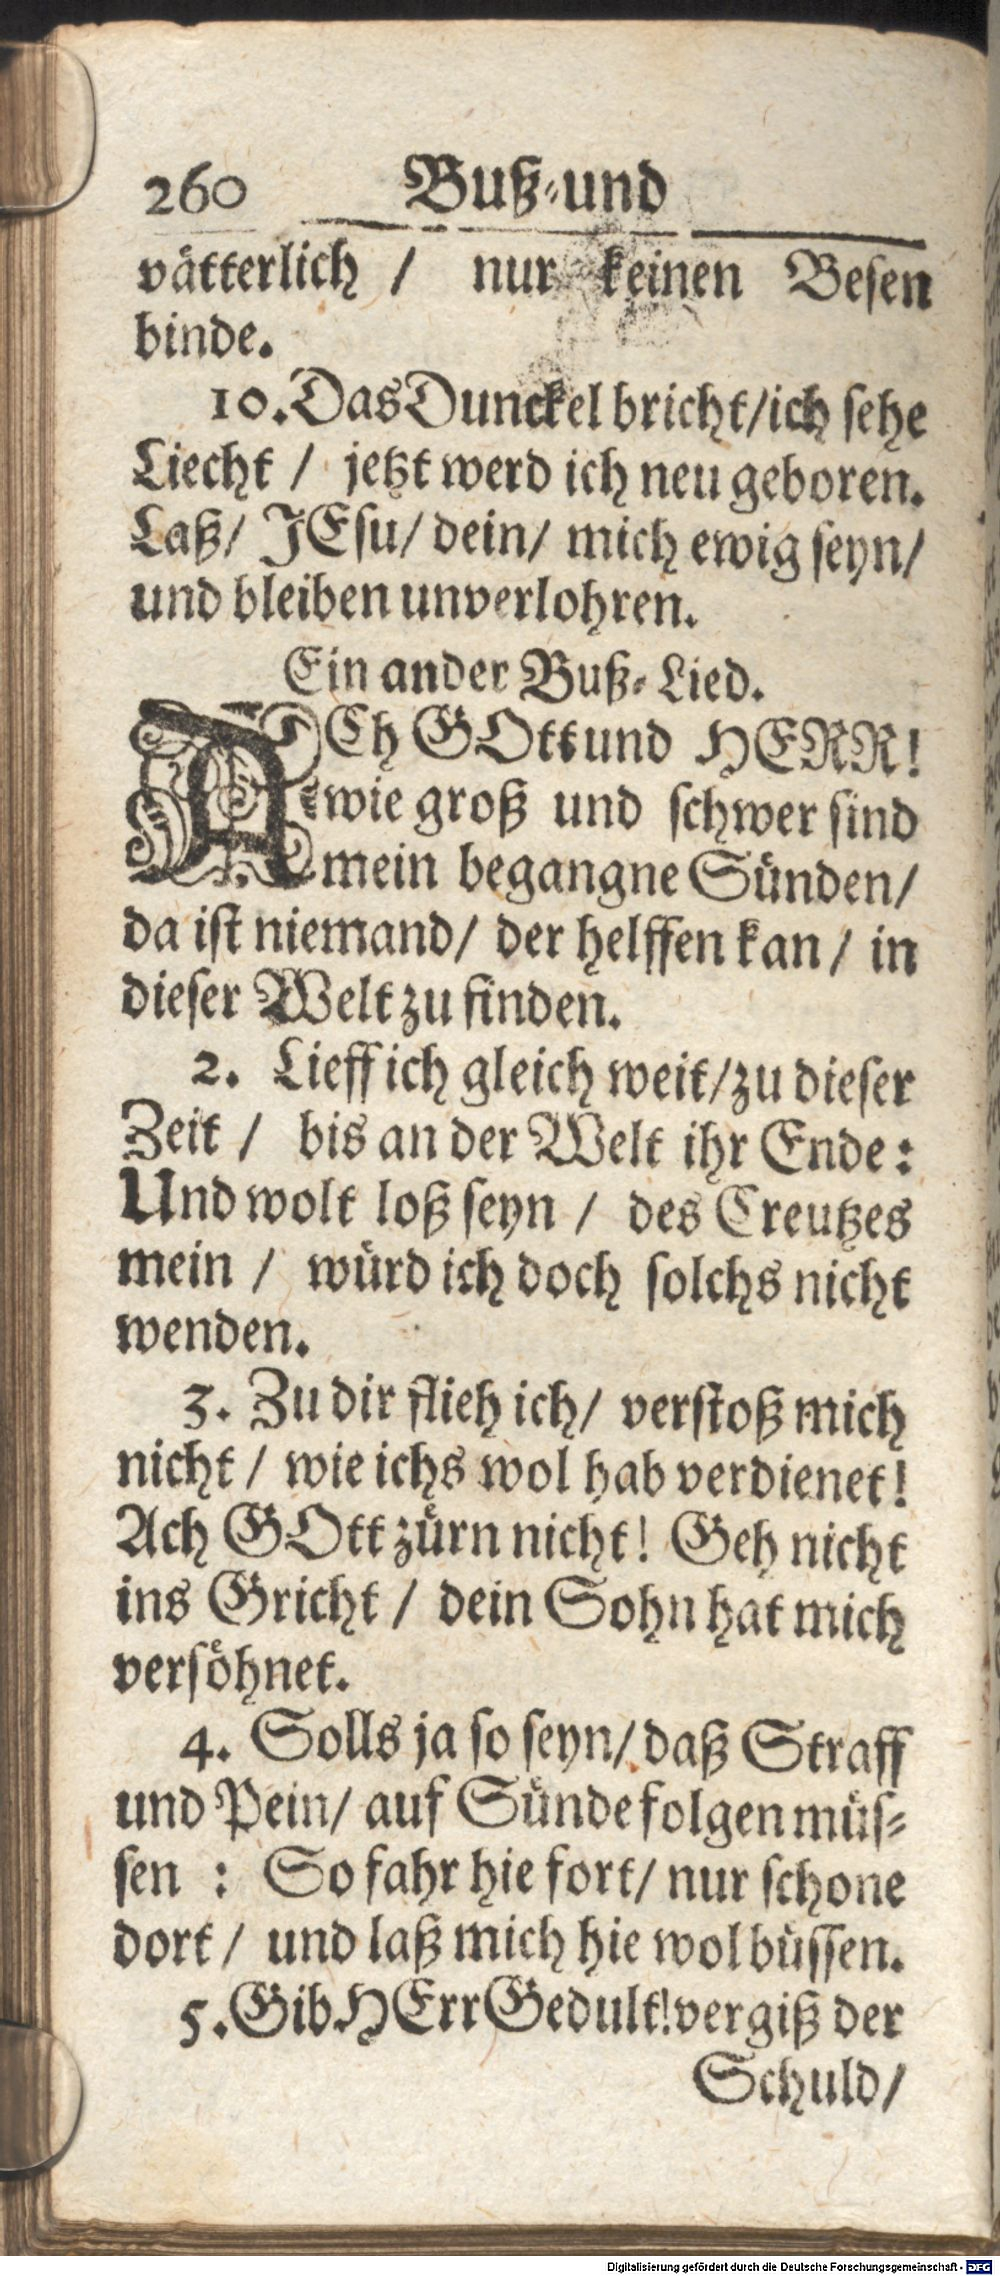 260 Buß-und
vätterlich / nur keinen Besen
binde.
10. Das Dunckel bricht/ich sehe
Liecht / jetzt werd ich neu geboren.
Laß/ JEsu/ dein/ mich ewig seyn/
und bleiben unverlohren.
Ein ander Buß-Lied.
ACh GOtt und HERR!
wie groß und schwer sind
mein begangne Sünden/
da ist niemand/ der helffen kan / in
dieser Welt zu finden.
2. Lieff ich gleich weit/zu dieser
Zeit / bis an der Welt ihr Ende:
Und wolt loß seyn / des Creutzes
mein / würd ich doch solchs nicht
wenden.
3. Zu dir flieh ich/ verstoß mich
nicht / wie ichs wol hab verdienet!
Ach GOtt zürn nicht! Geh nicht
ins Gricht / dein Sohn hat mich
versöhnet.
4. Solls ja so seyn/ daß Straff
und Pein/ auf Sünde folgen müs-
sen : So fahr hie fort/ nur schone
dort / und laß mich hie wol büssen.
5. Gib HErr Gedult! vergiß der
Schuld/
Digitalisierung gefördert durch die Deutsche Forschungsgemeinschaft - DFG